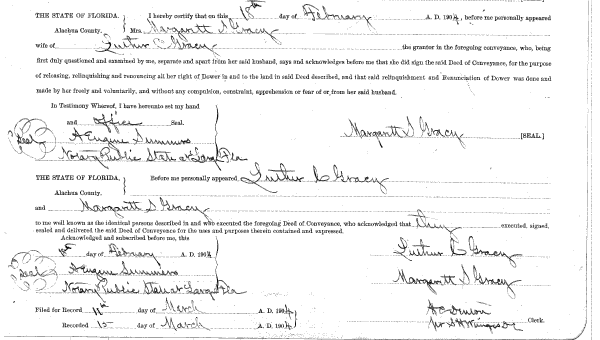 THE STATE OF FLORIDA, I hereby certify that on this 18th day of February A. D. 1904, before me personally appeared
Alachua County. Mrs. Margarett S Gracy
wife of Luther C Gracy the grantor in the foregoing conveyance, who, being
first duly questioned and examined by me, separate and apart from her said husband, says and acknowledges before me that she did sign the said Deed of Conveyance, for the purpose
of releasing, relinquishing and renouncing all her right of Dower in and to the land in said Deed described, and that said relinquishment and Renunciation of Dower was done and
made by her freely and voluntarily, and without any compulsion, constraint, apprehension or fear of or from her said husband.
In Testimony Whereof, I have hereunto set my hand
and office Seal.
Seal A Eugene Summers Margarett S Gracy [SEAL.]
Notary Public State at Large Fla
THE STATE OF FLORIDA, Before me personally appeared Luther C Gracy
Alachua County.
and Margarett S Gracy
to me well known as the identical persons described in and who executed the foregoing Deed of Conveyance, who acknowledged that they executed, signed,
sealed and delivered the said Deed of Conveyance for the uses and purposes therein contained and expressed.
Acknowledged and subscribed before me, this
18th day of February A. D. 1904 Luther C Gracy
Seal A Eugene Summers Margarett S Gracy
Notary Public State at Large Fla
Filed for Record 11th day of March A. D. 1904
Recorded 15 day of March A. D. 1904 Clerk.